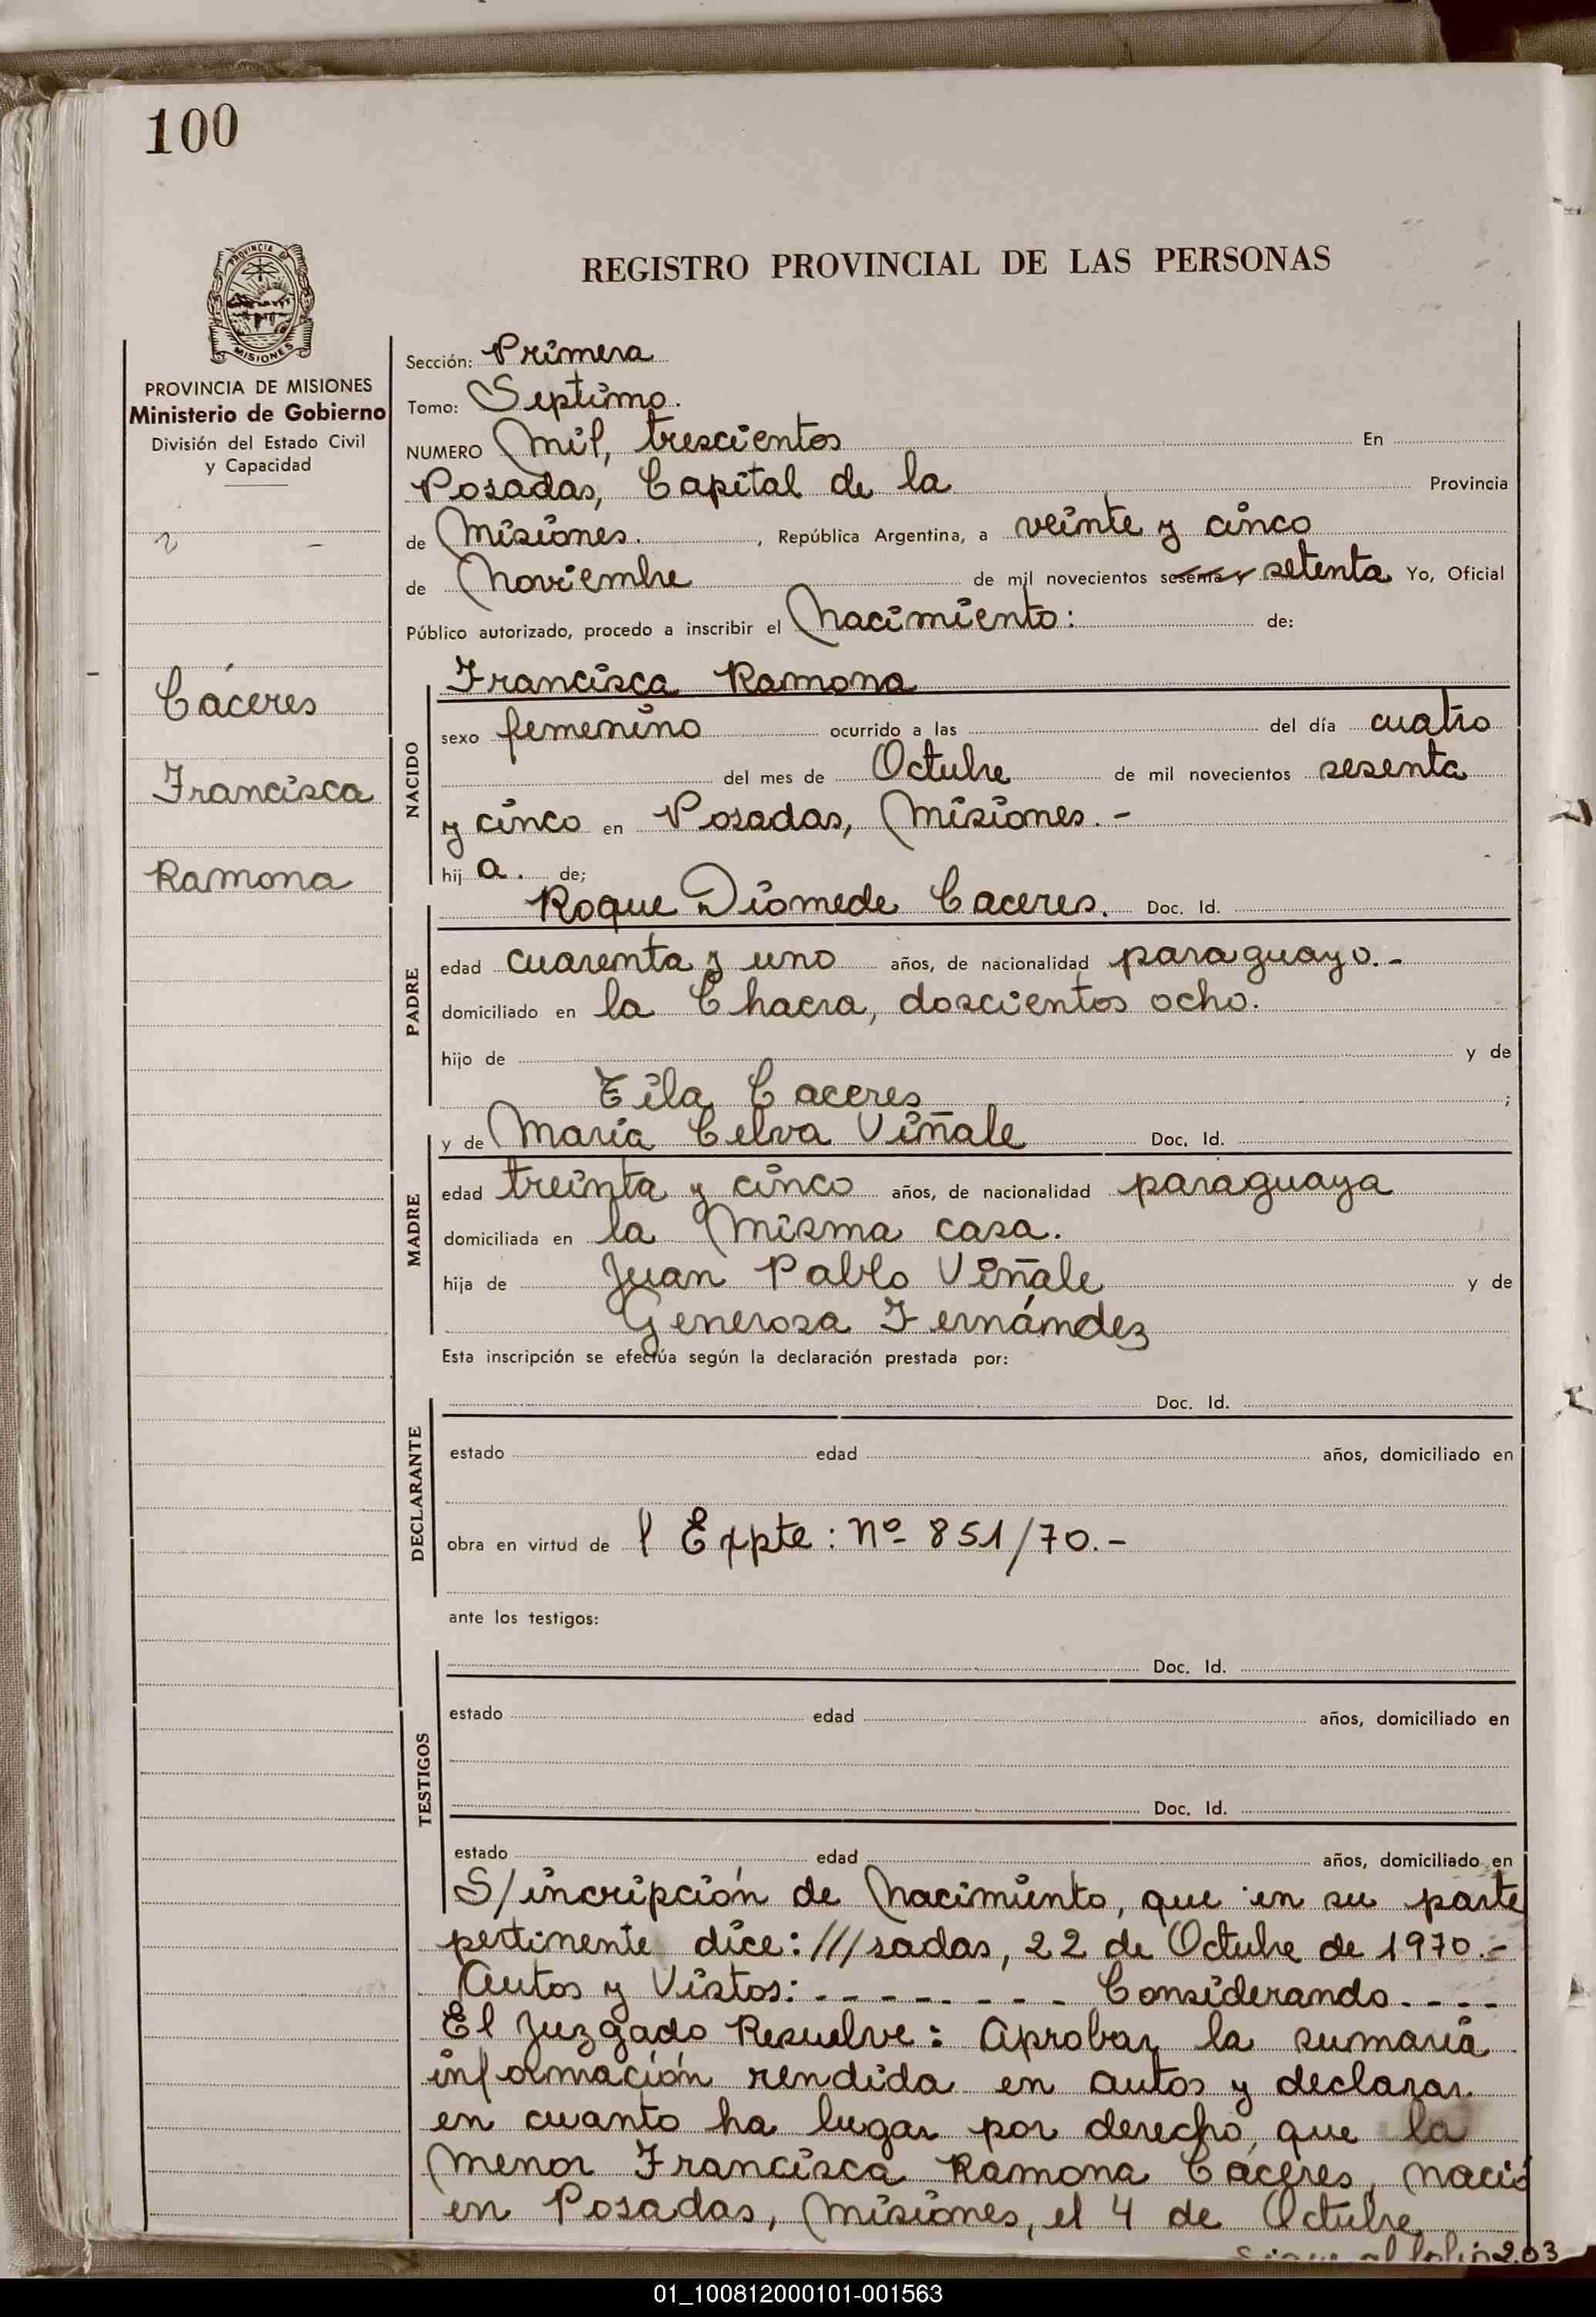 100
PROVINCIA DE
MISIONES
REGISTRO PROVINCIAL DE LAS PERSONAS
PROVINCIA DE MISIONES
Ministerio de Gobierno
División del Estado Civil
y Capacidad
Cáceres
Francisca
Ramona
Sección: Primera
Tomo: Septimo.
NUMERO Mil, trescientos En
Posadas, Capital de la Provincia
de Misiones. , República Argentina, a veinte y cinco
de Noviembre de mil novecientos sesenta y setenta Yo, Oficial
Público autorizado, procedo a inscribir el Nacimiento: de:
NACIDO
Francisca Ramona
sexo femenino ocurrido a las del día cuatro
del mes de Octubre de mil novecientos sesenta
y cinco en Posadas, Misiones.-
hij a. de;
PADRE
Roque Diomede Caceres. Doc. Id.
edad cuarenta y uno años, de nacionalidad paraguayo.-
domiciliado en la Chacra, doscientos ocho.
hijo de y de
Tila Caceres ;
MADRE
y de María Celva Viñale Doc. Id.
edad treinta y cinco años, de nacionalidad paraguaya
domiciliada en la Misma casa.
hija de Juan Pablo Viñale y de
Generosa Fernández
Esta inscripción se efectúa según la declaración prestada por:
DECLARANTE
Doc. Id.
estado edad años, domiciliado en
obra en virtud de l Expte: Nº 851/70.-
ante los testigos:
TESTIGOS
Doc. Id.
estado edad años, domiciliado en
Doc. Id.
estado edad años, domiciliado en
S/incripción de Nacimiento, que en su parte
pertinente dice: ///sadas, 22 de Octubre de 1970.-
Autos y Vistos: - - - - - - - - Considerando - - - -
El Juzgado Resuelve: Aprobar la sumaria
información rendida en autos y declarar
en cuanto ha lugar por derecho, que la
menor Francisca Ramona Cáceres, nació
en Posadas, Misiones, el 4 de Octubre
Sigue al folio 203
01_100812000101-001563